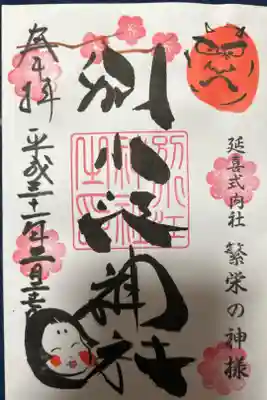 延喜式内社 繁栄の神様
別小江神社
別小江神社之印
奉拝
平成三十一年二月三日